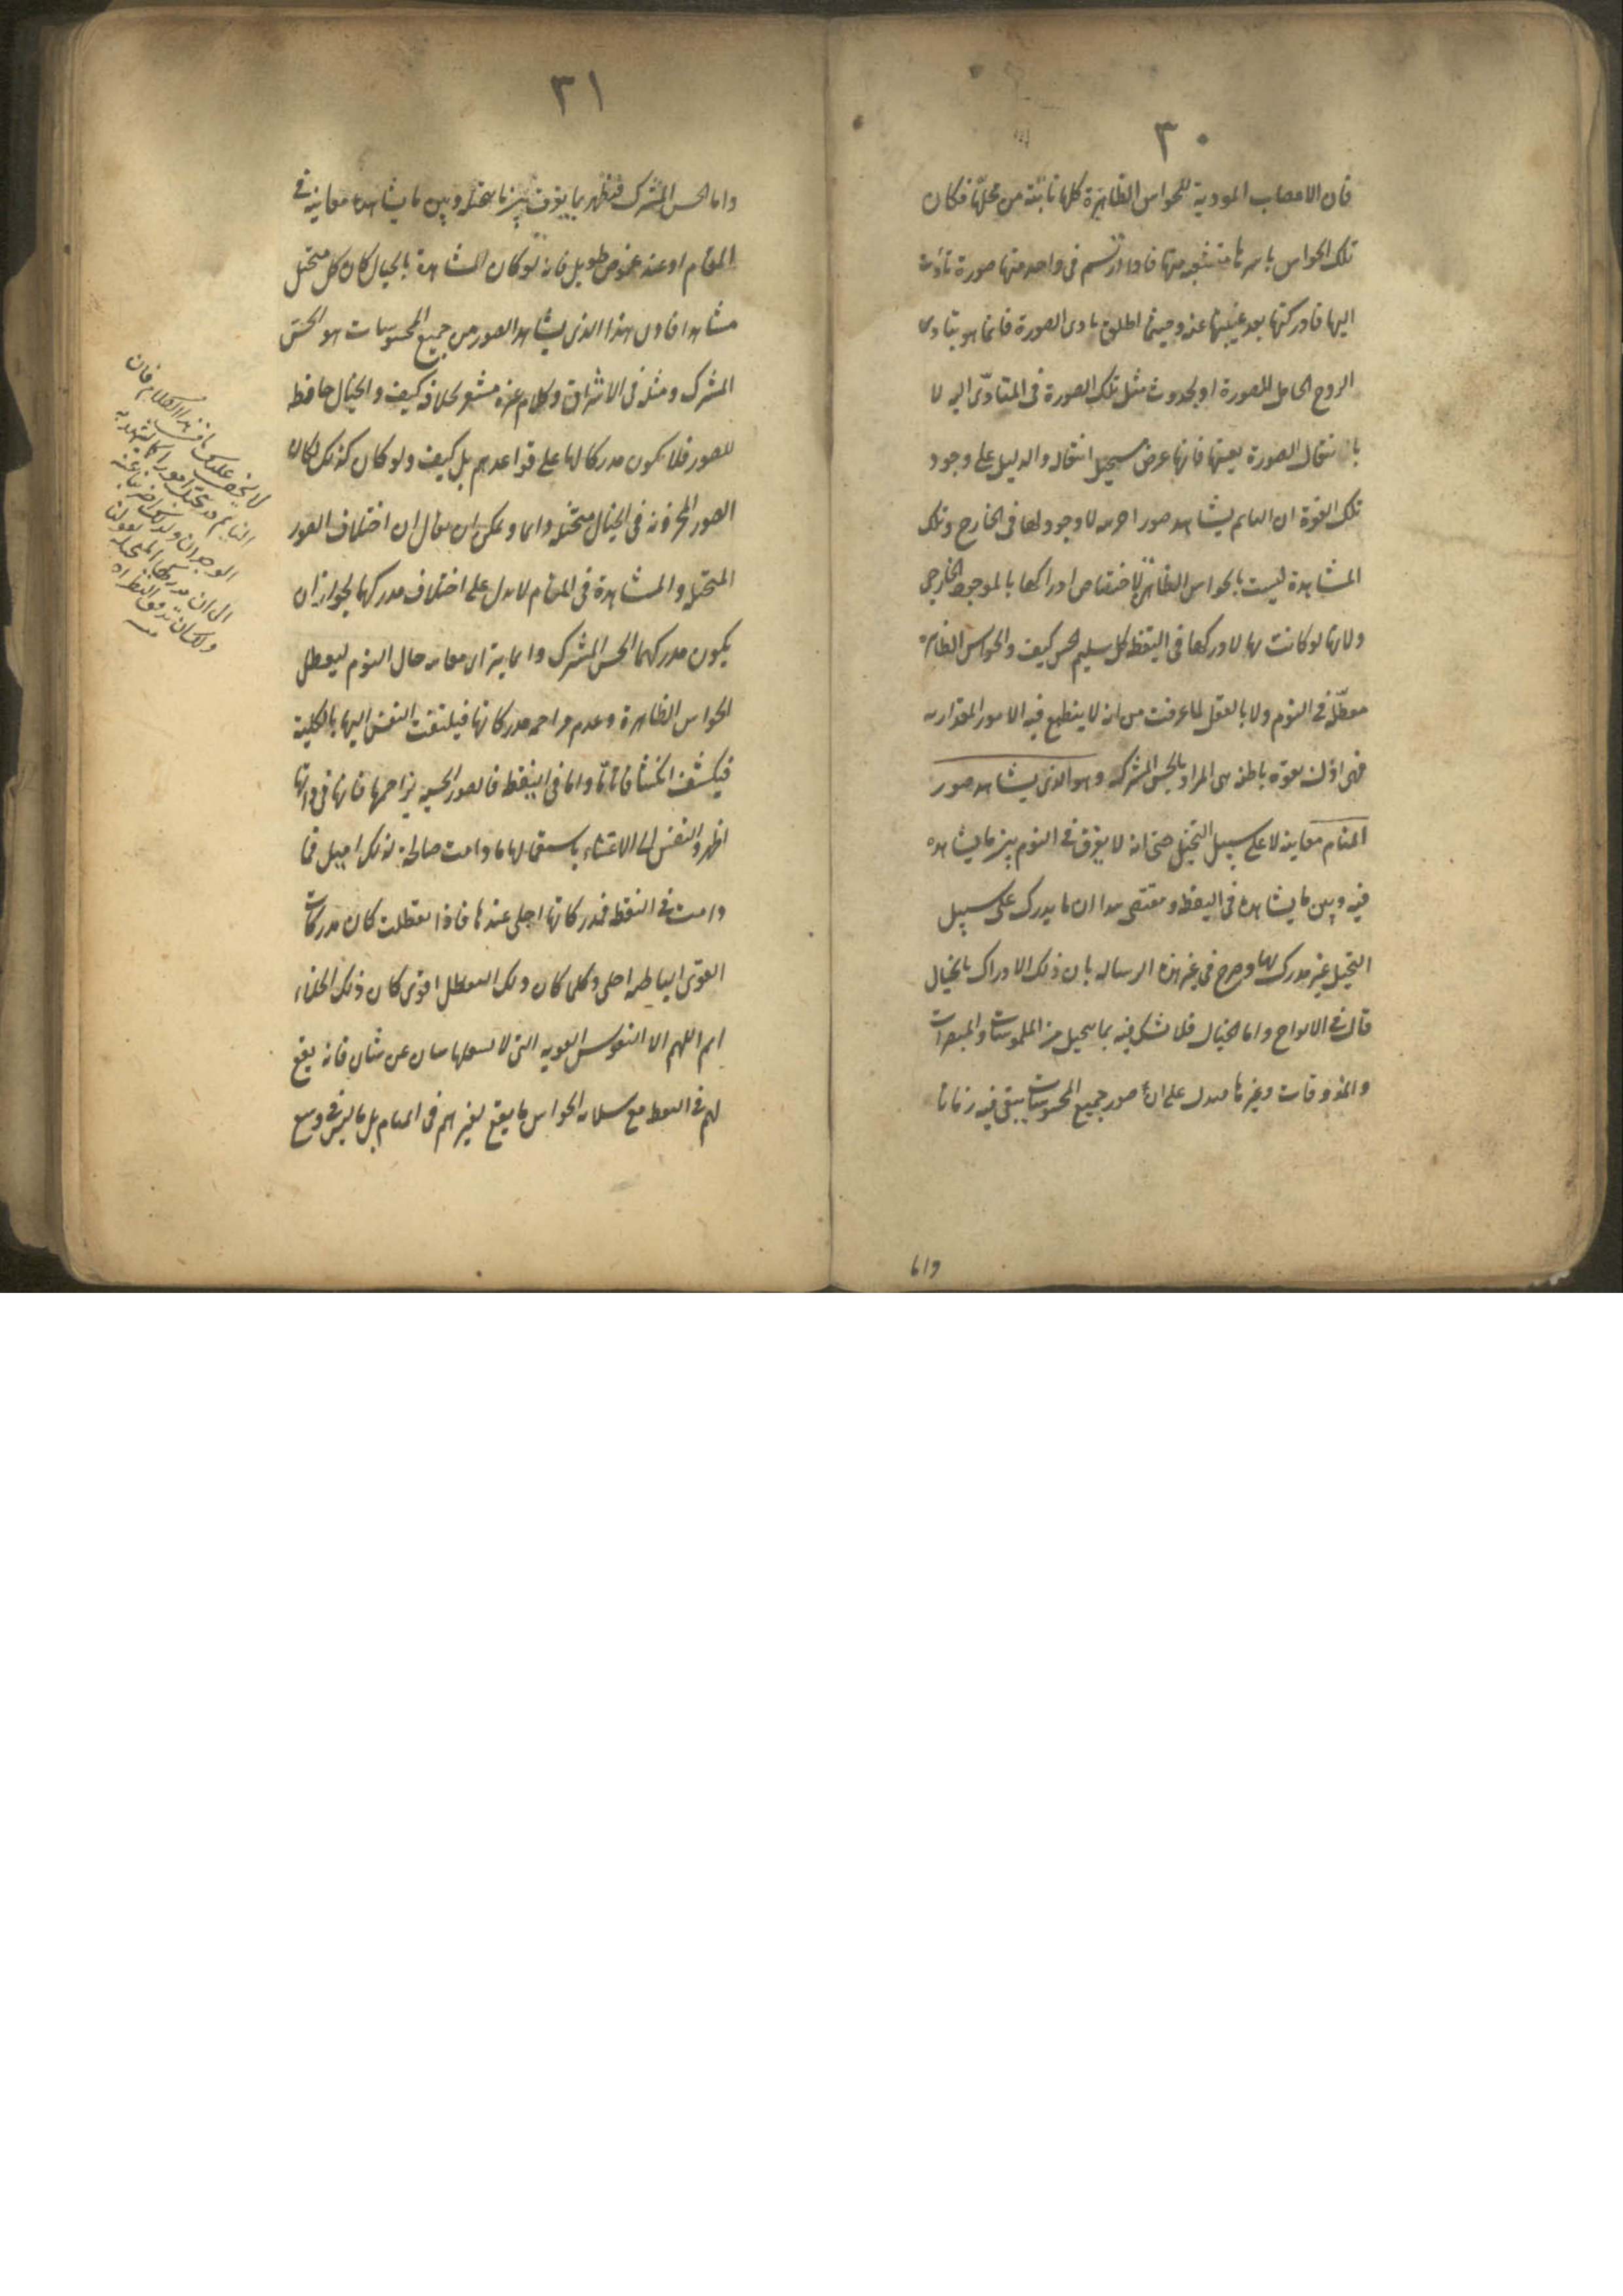 ٣٠
فان الاعصاب المودية للحواس الظاهرة كلها نابتة من محلها فكان
تلك الحواس باسرها متشعبة منها فاذا ارتسم في واحد منها صورة تأدت
اليها فادركتها بعد غيبتها عنه وحيثما اطلق تادى الصورة فانما هو بتادى
الروح الحامل للصورة او بحدوث مثل تلك الصورة في المتادّى اليه لا
بانتقال الصورة بعينها فانها عرض يستحيل انتقاله والدليل على وجود
تلك القوة ان النايم يشاهد صورا جزئية لا وجود لها في الخارج وتلك
المشاهدة ليست بالحواس الظاهرة لاختصاص ادراكها بالموجود الخارجي
ولانها لو كانت بها لادركها في اليقظة كل سليم الحس كيف والحواس الظاهرة
معطّلة في النوم ولا بالعقل لما عرفت من انه لا ينطبع فيه الامور المقدارية
فهى اذن بقوة باطنة هى المراد بالحس المشترك وهو الذى يشاهد صور
المنام معاينة لا على سبيل التخيل حتى انه لا يفرق في النوم بين ما يشاهده
فيه وبين ما يشاهده في اليقظة ومقتضى هذا ان ما يدرك على سبيل
التخيل غير مدرك لها وصرح في غير هذه الرسالة بان ذلك الادراك بالخيال
قال في الالواح واما الخيال فلا نشك فيه بما يتخيل من الملموسات والمبصرات
والمذوقات وغيرها فيدل على ان صور جميع المحسوسات يبقى فيه زمانا
واما
٣١
واما الحس المشترك فيظهر بما يفرق بين ما يتخيله وبين ما يشاهده معاينة في
المنام او عند غموض طويل فانه لو كان المشاهدة بالخيال كان كل متخيل
مشاهدا فاذن هذا الذى يشاهد الصور من جميع المحسوسات هو الحس
المشترك ومثله في الاشراق وكلام غيره مشعر بخلافه كيف والخيال حافظة
للصور فلا يكون مدركا لها على قواعدهم بل كيف ولو كان كذلك لكان
الصور المخزونة في الخيال متخيلة دائما ويمكن ان يقال ان اختلاف الصور
المتخيلة والمشاهدة في المنام لا يدل على اختلاف مدركهما لجواز ان
يكون مدركهما الحس المشترك وانما يتراى معاينة حال النوم لتعطل
الحواس الظاهرة وعدم مزاحمة مدركاتها فيلتفت النفس اليها بالكلية
فيكشف انكشافا تاما واما في اليقظة فالصور الحسية يزاحمها فانها في ذاتها
اظهر والنفس الى الاعتناء باستعمالها ما دامت صالحة لذلك اميل فما
دامت في اليقظة فمدركاتها اجلى عندها فاذا تعطلت كان مدركات
القوى الباطنة اجلى وكلما كان ذلك التعطل اقوى كان ذلك الجلاء
اتم اللهم الا النفوس القوية التى لا يشغلها شان عن شان فانه يقع
لهم في اليقظة مع سلامة الحواس ما يقع لغيرهم في المنام بل ما ليس في وسع
لا يخفى عليك ما في هذا الكلام فان
النايم قد يتخيل امورا كما يشهد به
الوجدان